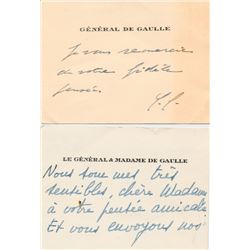 GÉNÉRAL DE GAULLE
Je vous remercie
de votre fidèle
pensée.
LE GÉNÉRAL & MADAME DE GAULLE
Nous sommes très
sensibles, chère Madame
à votre pensée amicale
Et vous envoyons nos